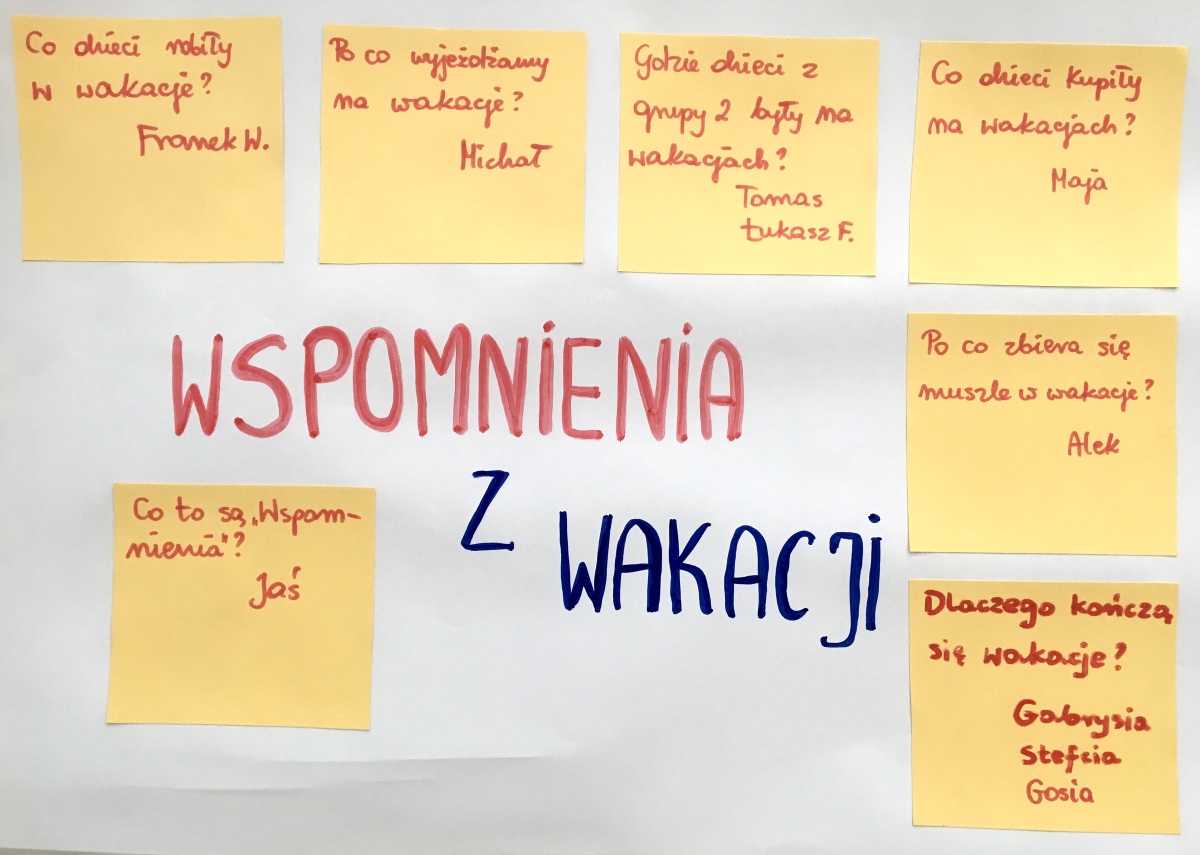 Co dzieci robiły
w wakacje?
Franek W.
Po co wyjeżdżamy
na wakacje?
Michał
Gdzie dzieci z
grupy 2 były na
wakacjach?
Tomas
Łukasz F.
Co dzieci kupiły
na wakacjach?
Maja
WSPOMNIENIA
Z
WAKACJI
Po co zbiera się
muszle w wakacje?
Alek
Co to są „Wspom-
nienia"?
Jaś
Dlaczego kończą
się wakacje?
Gabrysia
Stefcia
Gosia